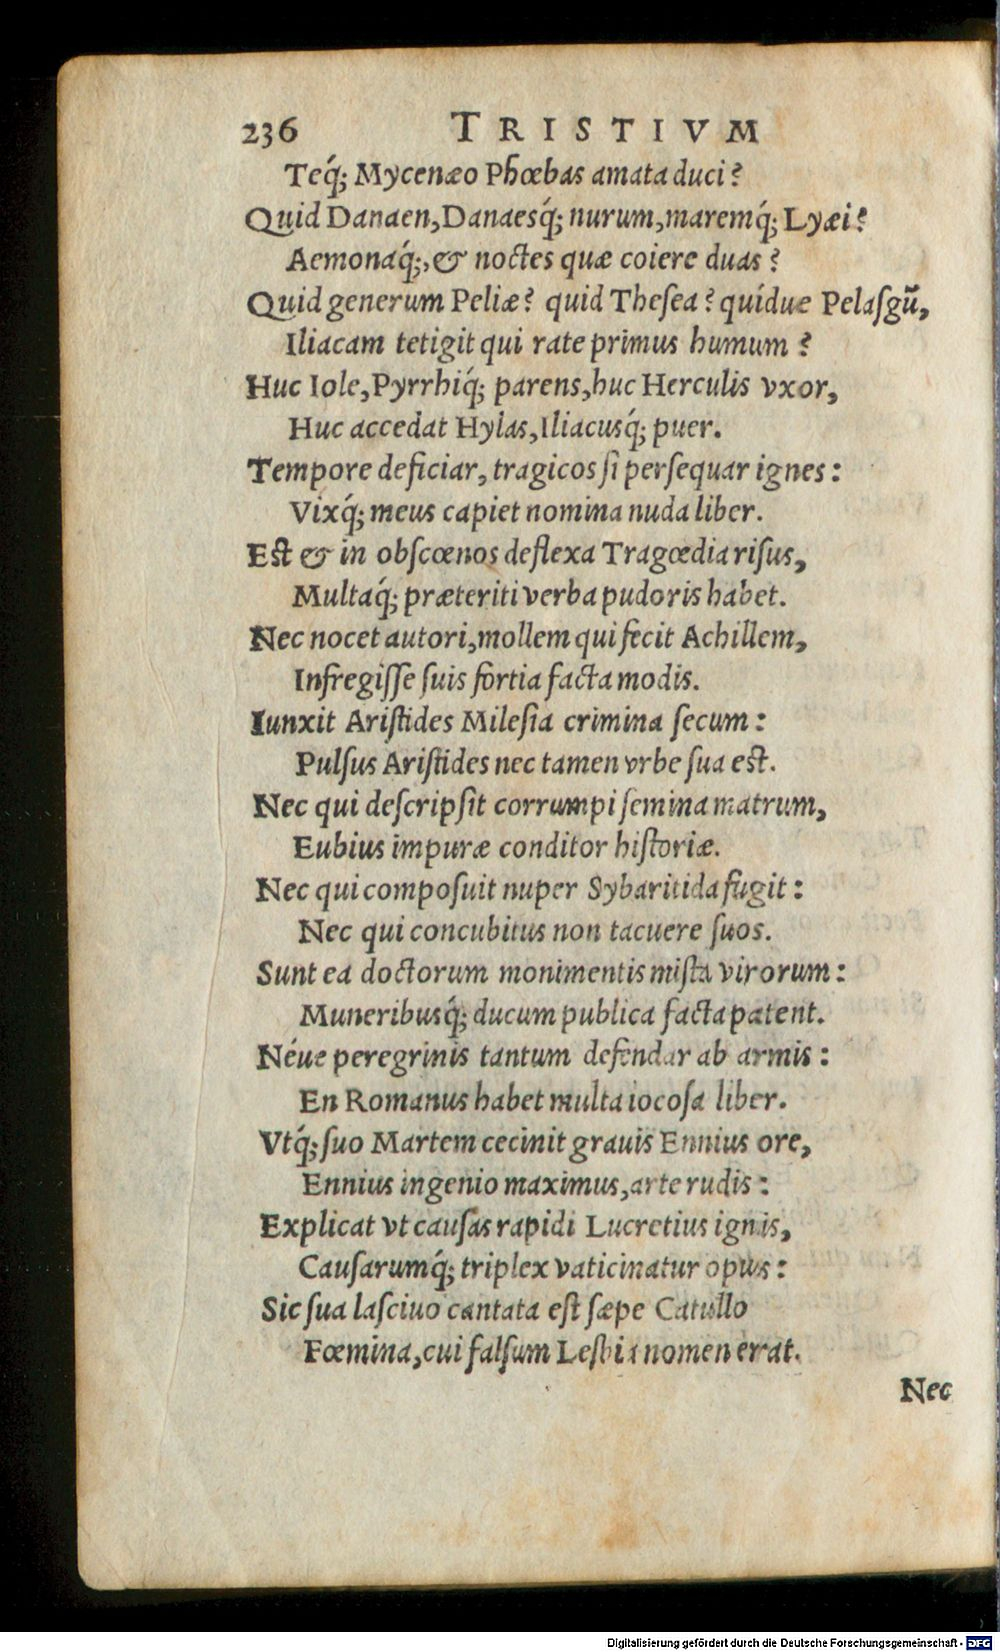 236 TRISTIVM
Teq́; Mycenæo Phœbas amata duci?
Quid Danaen, Danaesq́; nurum, maremq́; Lyæi?
Aemonaq́;, & noctes quæ coiere duas?
Quid generum Peliæ? quid Theſea? quídue Pelaſgũ,
Iliacam tetigit qui rate primus humum?
Huc Iole, Pyrrhiq́; parens, huc Herculis vxor,
Huc accedat Hylas, Iliacusq́; puer.
Tempore deficiar, tragicos ſi perſequar ignes:
Vixq́; meus capiet nomina nuda liber.
Est & in obſcœnos deflexa Tragœdia riſus,
Multaq́; præteriti verba pudoris habet.
Nec nocet autori, mollem qui fecit Achillem,
Infregiſſe ſuis fortia facta modis.
Iunxit Ariſtides Mileſia crimina ſecum:
Pulſus Ariſtides nec tamen vrbe ſua eſt.
Nec qui deſcripſit corrumpi ſemina matrum,
Eubius impuræ conditor hiſtoriæ.
Nec qui compoſuit nuper Sybaritida fugit:
Nec qui concubitus non tacuere ſuos.
Sunt ea doctorum monimentis miſta virorum:
Muneribusq́; ducum publica facta patent.
Néue peregrinis tantum defendar ab armis:
En Romanus habet multa iocoſa liber.
Vtq́; ſuo Martem cecinit grauis Ennius ore,
Ennius ingenio maximus, arte rudis:
Explicat vt cauſas rapidi Lucretius ignis,
Cauſarumq́; triplex vaticinatur opus:
Sic ſua laſciuo cantata eſt ſæpe Catullo
Fœmina, cui falſum Lesbia nomen erat.
Nec
Digitalisierung gefördert durch die Deutsche Forschungsgemeinschaft - DFG